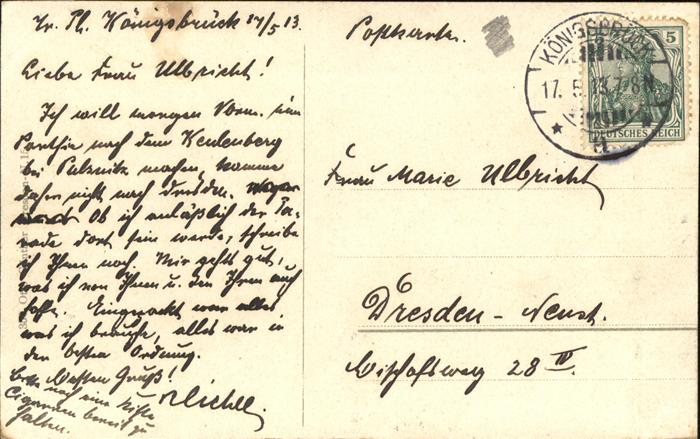 Tr. Pl. Königsbrück 17/5 13.
Liebe Frau Ulbricht!
Ich will morgen Vorm. eine
Parthie nach dem Keulenberg
bei Pulsnitz machen, komme
daher nicht nach Dresden.
Ob ich anläßlich der Pa-
rade dort sein werde, schreibe
ich Ihnen noch. Mir gehts gut,
was ich von Ihnen u. den Ihren auch
hoffe. Eingepackt war alles
was ich brauche, alles war in
der besten Ordnung.
Besten Gruß!
Bitte noch eine Kiste
Cigarren bereit zu
halten.
Postkarte.
KÖNIGSBRÜCK
17. 5. 13. 7-8 N
5
DEUTSCHES REICH
Frau Marie Ulbricht
Dresden-Neust.
Bischofsweg 28 IV.